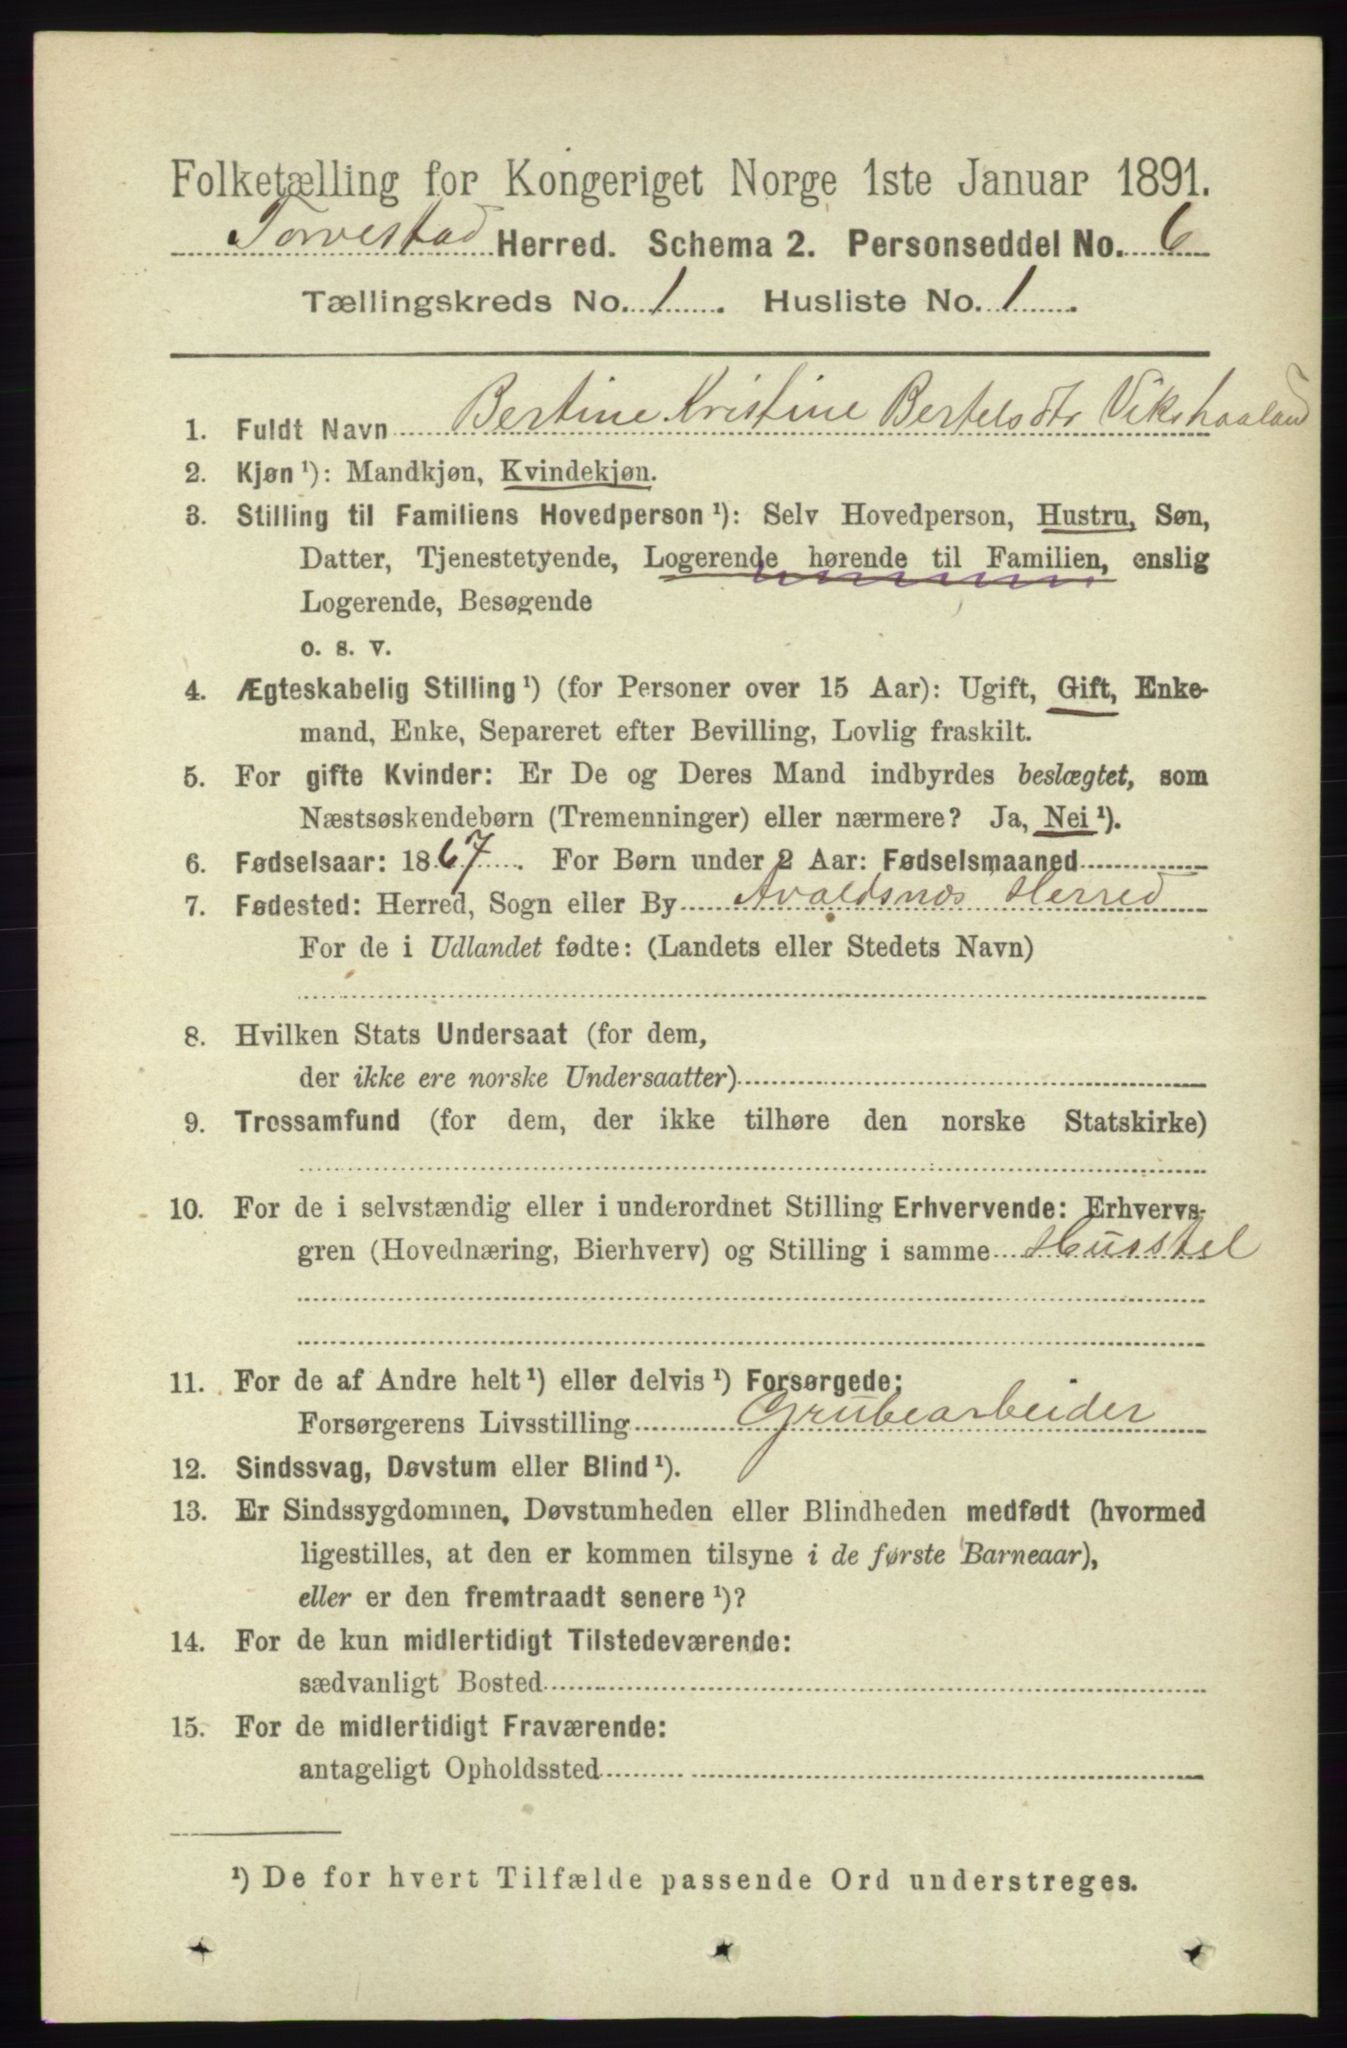 Folketælling for Kongeriget Norge 1ste Januar 1891.
Torvestad Herred. Schema 2. Personseddel No. 6
Tællingskreds No. 1. Husliste No. 1.
1. Fuldt Navn Bertine Kristine Bertelsdtr Vikshaaland
2. Kjøn¹): Mandkjøn, Kvindekjøn.
3. Stilling til Familiens Hovedperson¹): Selv Hovedperson, Hustru, Søn,
Datter, Tjenestetyende, Logerende hørende til Familien, enslig
Logerende, Besøgende
o. s. v.
4. Ægteskabelig Stilling¹) (for Personer over 15 Aar): Ugift, Gift, Enke-
mand, Enke, Separeret efter Bevilling, Lovlig fraskilt.
5. For gifte Kvinder: Er De og Deres Mand indbyrdes beslægtet, som
Næstsøskendebørn (Tremenninger) eller nærmere? Ja, Nei¹).
6. Fødselsaar: 1867. For Børn under 2 Aar: Fødselsmaaned
7. Fødested: Herred, Sogn eller By Avaldsnes Herred
For de i Udlandet fødte: (Landets eller Stedets Navn)
8. Hvilken Stats Undersaat (for dem,
der ikke ere norske Undersaatter)
9. Trossamfund (for dem, der ikke tilhøre den norske Statskirke)
10. For de i selvstændig eller i underordnet Stilling Erhvervende: Erhvervs-
gren (Hovednæring, Bierhverv) og Stilling i samme Husstel
11. For de af Andre helt¹) eller delvis¹) Forsørgede:
Forsørgerens Livsstilling Grubearbeider
12. Sindssvag, Døvstum eller Blind¹).
13. Er Sindssygdommen, Døvstumheden eller Blindheden medfødt (hvormed
ligestilles, at den er kommen tilsyne i de første Barneaar),
eller er den fremtraadt senere¹)?
14. For de kun midlertidigt Tilstedeværende:
sædvanligt Bosted
15. For de midlertidigt Fraværende:
antageligt Opholdssted
¹) De for hvert Tilfælde passende Ord understreges.